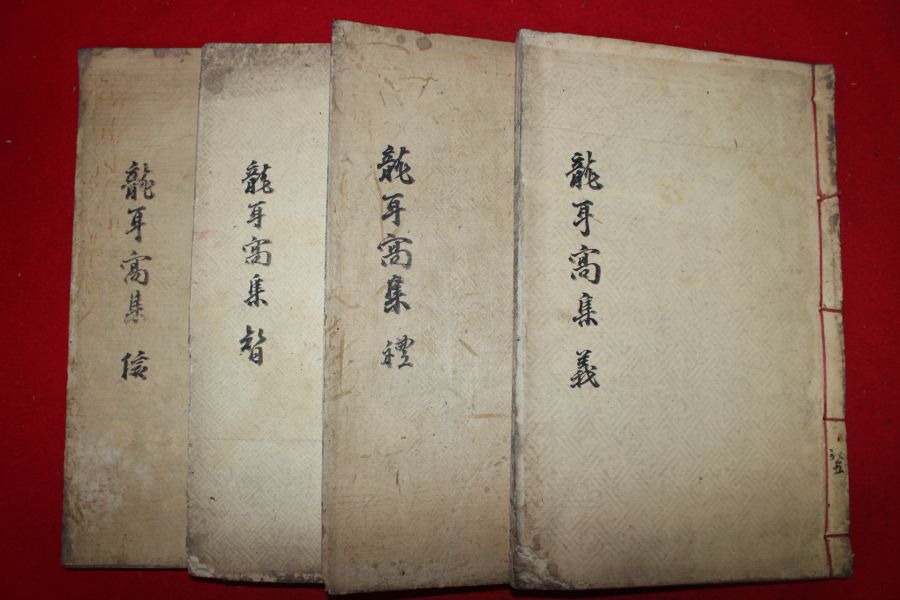 龍耳窩集 義
龍耳窩集 禮
龍耳窩集 智
龍耳窩集 信
共五